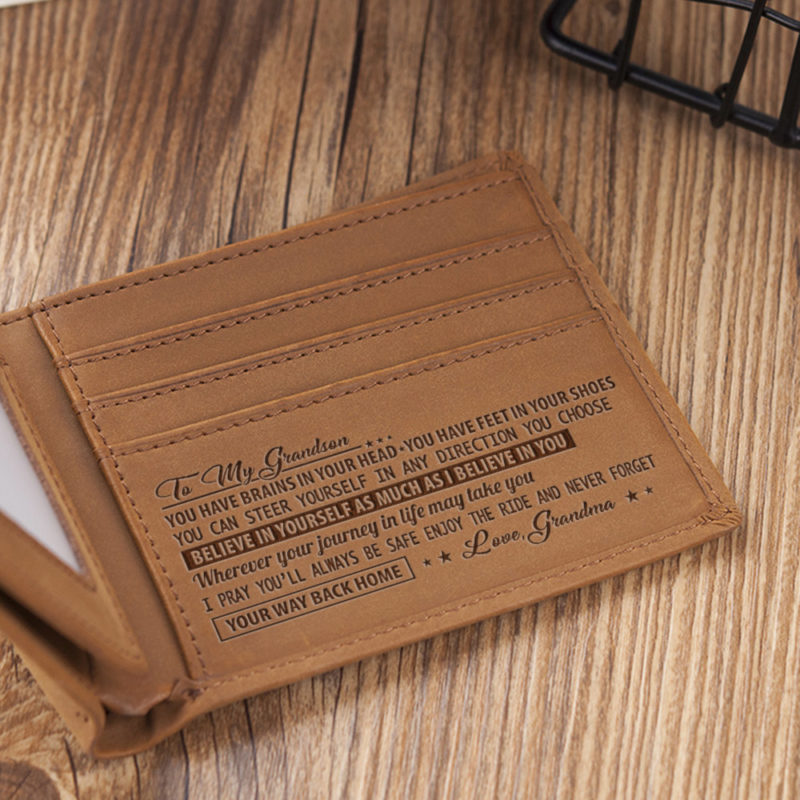 To My Grandson
YOU HAVE BRAINS IN YOUR HEAD • YOU HAVE FEET IN YOUR SHOES
YOU CAN STEER YOURSELF IN ANY DIRECTION YOU CHOOSE
BELIEVE IN YOURSELF AS MUCH AS I BELIEVE IN YOU
Wherever your journey in life may take you
I PRAY YOU'LL ALWAYS BE SAFE ENJOY THE RIDE AND NEVER FORGET
YOUR WAY BACK HOME
Love, Grandma